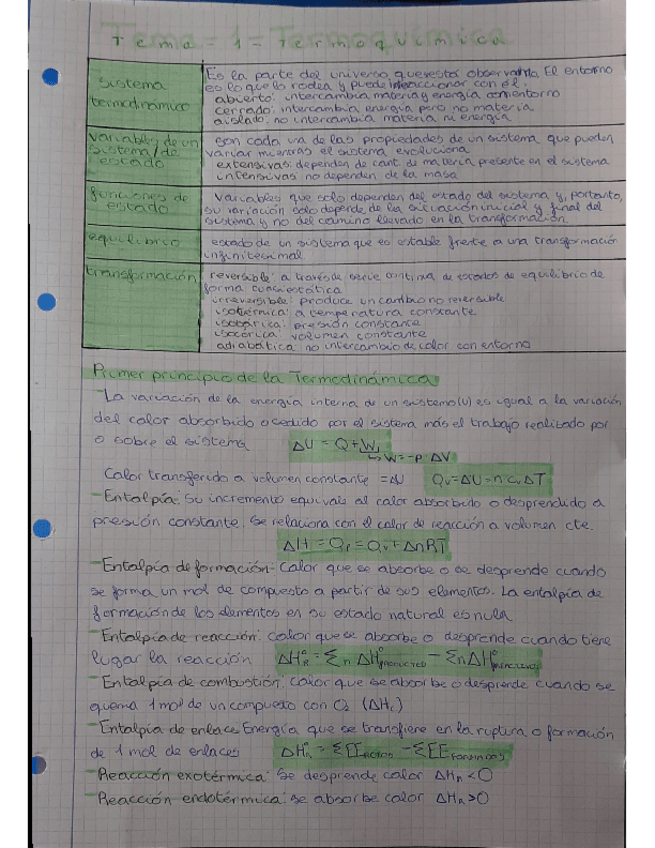 Tema = 1 = Termoquímica
sistema
termodinámico
Es la parte del universo que estás observando. El entorno
es lo que lo rodea y puede interaccionar con él
abierto: intercambia materia y energía con entorno
cerrado: intercambia energía pero no materia
aislado: no intercambia materia ni energía
variables de un
sistema/de
estado
son cada una de las propiedades de un sistema que pueden
variar mientras el sistema evoluciona
extensivas: dependen de cant. de materia presente en el sistema
intensivas: no dependen de la masa
funciones de
estado
variables que solo dependen del estado del sistema y, portanto,
su variación solo depende de la situación inicial y final del
sistema y no del camino llevado en la transformación.
equilibrio
estado de un sistema que es estable frente a una transformación
infinitesimal
transformación
reversible: a través de serie continua de estados de equilibrio de
forma cuasiestática
irreversible: produce un cambio no reversible
isotérmica: a temperatura constante
isobárica: presión constante
isocórica: volumen constante
adiabática: no intercambio de calor con entorno
Primer principio de la Termodinámica
-La variación de la energía interna de un sistema (U) es igual a la variación
del calor absorbido o cedido por el sistema más el trabajo realizado por
o sobre el sistema ΔU = Q + W
↳ W = -p · ΔV
Calor transferido a volumen constante = ΔU Qv = ΔU = n cv ΔT
-Entalpía: Su incremento equivale al calor absorbido o desprendido a
presión constante. Se relaciona con el calor de reacción a volumen cte.
ΔH = Qp = Qv + ΔnRT
-Entalpía de formación: Calor que se absorbe o se desprende cuando
se forma un mol de compuesto a partir de sus elementos. La entalpía de
formación de los elementos en su estado natural es nula
-Entalpía de reacción: Calor que se absorbe o desprende cuando tiene
lugar la reacción ΔH°R = Σn ΔH°productos - ΣnΔH°
-Entalpía de combustión: Calor que se absorbe o desprende cuando se
quema 1 mol de un compuesto con O2 (ΔHc)
-Entalpía de enlace: Energía que se transfiere en la ruptura o formación
de 1 mol de enlaces ΔH°R = ΣEE - ΣEE formados
-Reacción exotérmica: Se desprende calor ΔHR < 0
-Reacción endotérmica: se absorbe calor ΔHR > 0